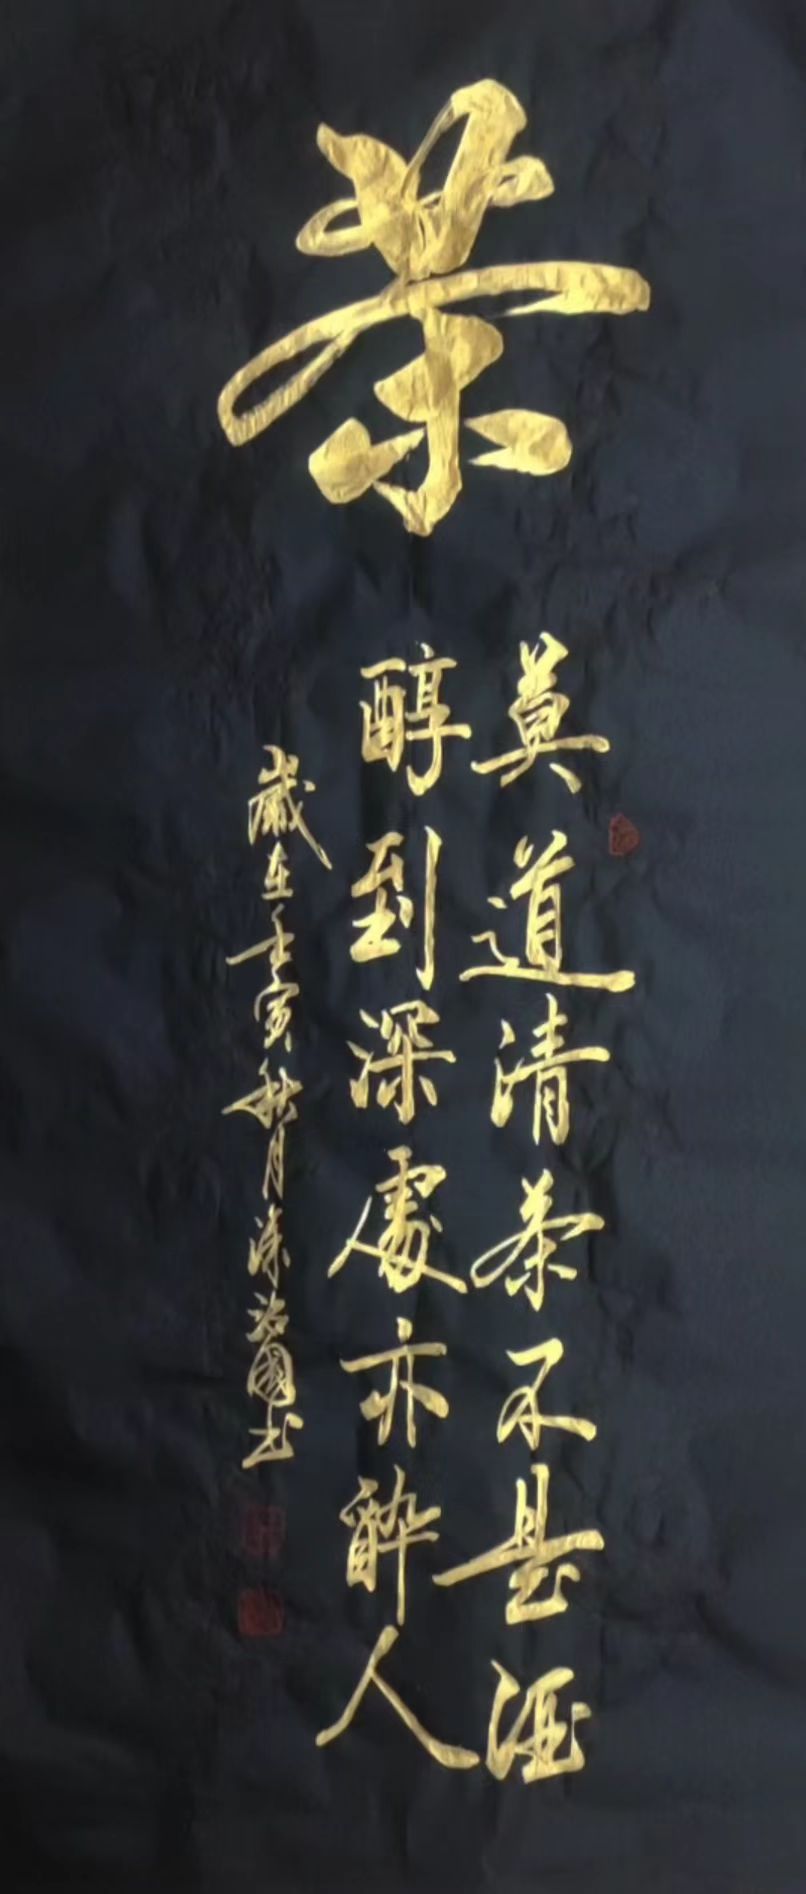 茶
莫道清茶不是酒
醇到深處亦醉人
歲在壬寅秋月涂治國书